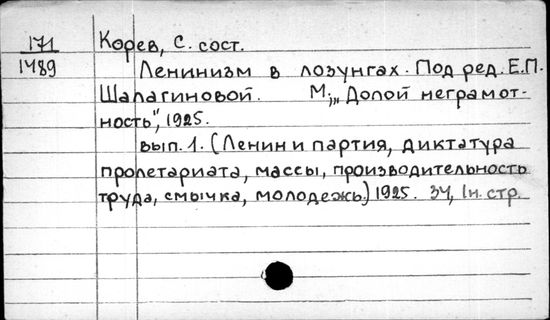 171 Корев, С. сост.
1489 Ленинизм в лозунгах. Под ред. Е.П.
Шалагиновой. М., „Долой неграмот-
ность", 1925.
вып. 1. (Ленин и партия, диктатура
пролетариата, массы, производительность
труда, смычка, молодежь.) 1925. 34, 1н. стр.